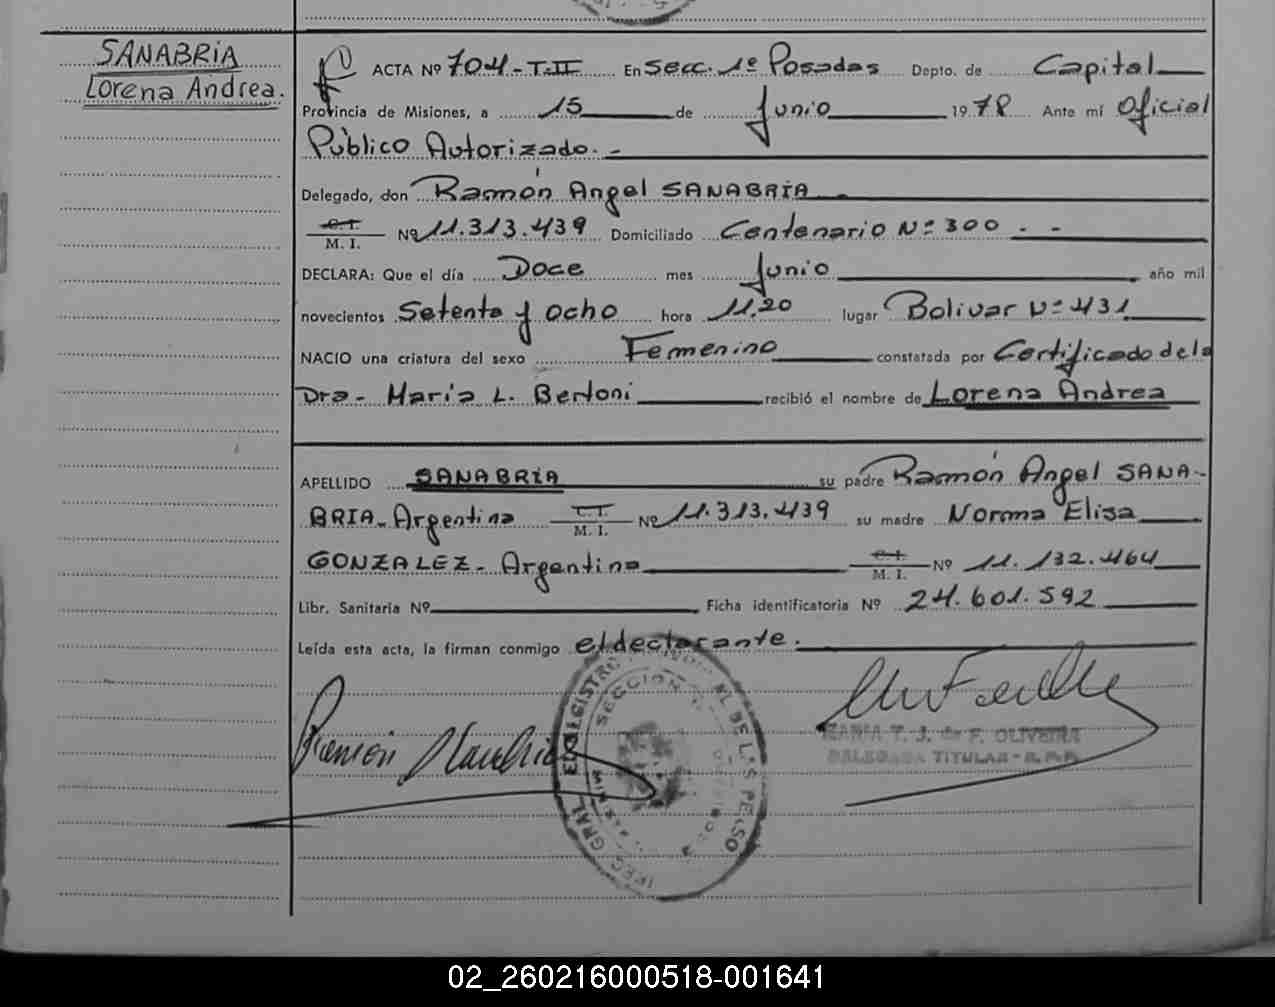 SANABRIA
Lorena Andrea.
ACTA Nº 704-T.II En Secc. 1º Posadas Depto. de Capital
Provincia de Misiones, a 15 de Junio 1978 Ante mí Oficial
Público Autorizado. -
Delegado, don Ramón Angel SANABRIA
C. I.
M. I. Nº 11.313.439 Domiciliado Centenario Nº 300 - -
DECLARA: Que el día Doce mes Junio año mil
novecientos Setenta y ocho hora 11,20 lugar Bolivar Nº 431
NACIO una criatura del sexo Femenino constatada por Certificado de la
Dra- María L. Bertoni recibió el nombre de Lorena Andrea
APELLIDO SANABRIA su padre Ramón Angel SANA-
BRIA- Argentina C. I. M. I. Nº 11.313.439 su madre Norma Elisa
GONZALEZ- Argentina C. I. M. I. Nº 11.132.464
Libr. Sanitaria Nº Ficha identificatoria Nº 24.601.592
Leída esta acta, la firman conmigo el declarante.
SECCION
MARIA T. J. de F. OLIVEIRA
DELEGADA TITULAR - R.P.P.
02_260216000518-001641